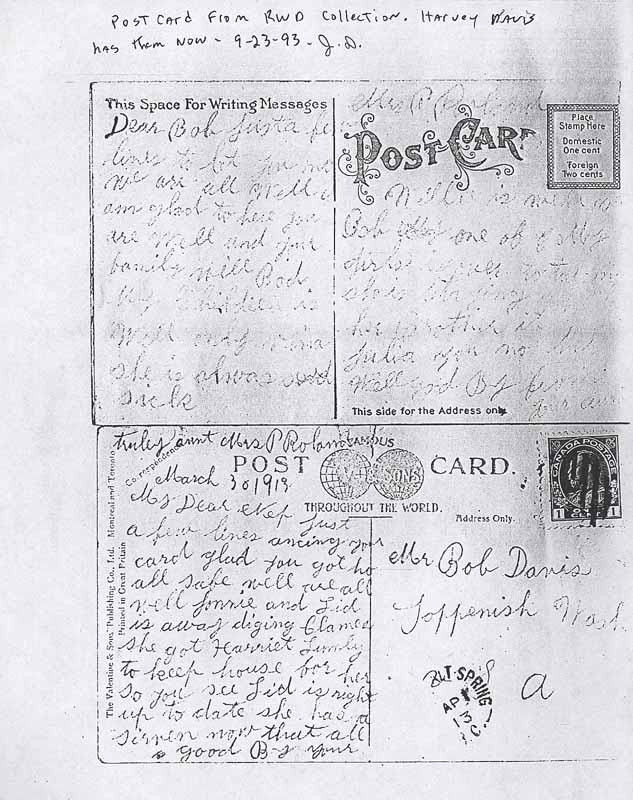 Post Card From RWD Collection. Harvey Davis
has them now - 9-23-93 - J.D.
This Space For Writing Messages
Dear Bob Just a few
lines to let you no
we are all well I
am glad to here you
are well and your
family well Bob
My Children is
well only
she is alwas
sick
Mrs P Roland
POST CARD
Place
Stamp Here
Domestic
One cent
Foreign
Two cents
Willie is with
Bob one of My
girls
her Brother
Julia you no
well god By from
your aunt
This side for the Address only
truley aunt Mrs P Roland
FAMOUS
Correspondence
March 30 1913
POST CARD.
V & SONS
THROUGHOUT THE WORLD.
Address Only.
CANADA POSTAGE
1 CENT 1
The Valentine & Sons' Publishing Co., Ltd. Montreal and Toronto
Printed in Great Britain
My Dear Nep Just
a few lines ancing your
card glad you got ho
all safe well we are all
well Jonnie and Lid
is away diging Clames
she got Harriet Lumly
to keep house for her
so you see Lid is right
up to date she has a
Sirven now that all
good By your
Mr Bob Davis
Toppenish Wash
SALT SPRING
AP
13
B.C.
a